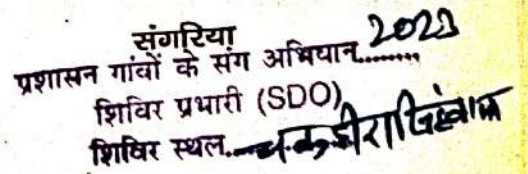 संगरिया
प्रशासन गांवों के संग अभियान 2023
शिविर प्रभारी (SDO)
शिविर स्थल